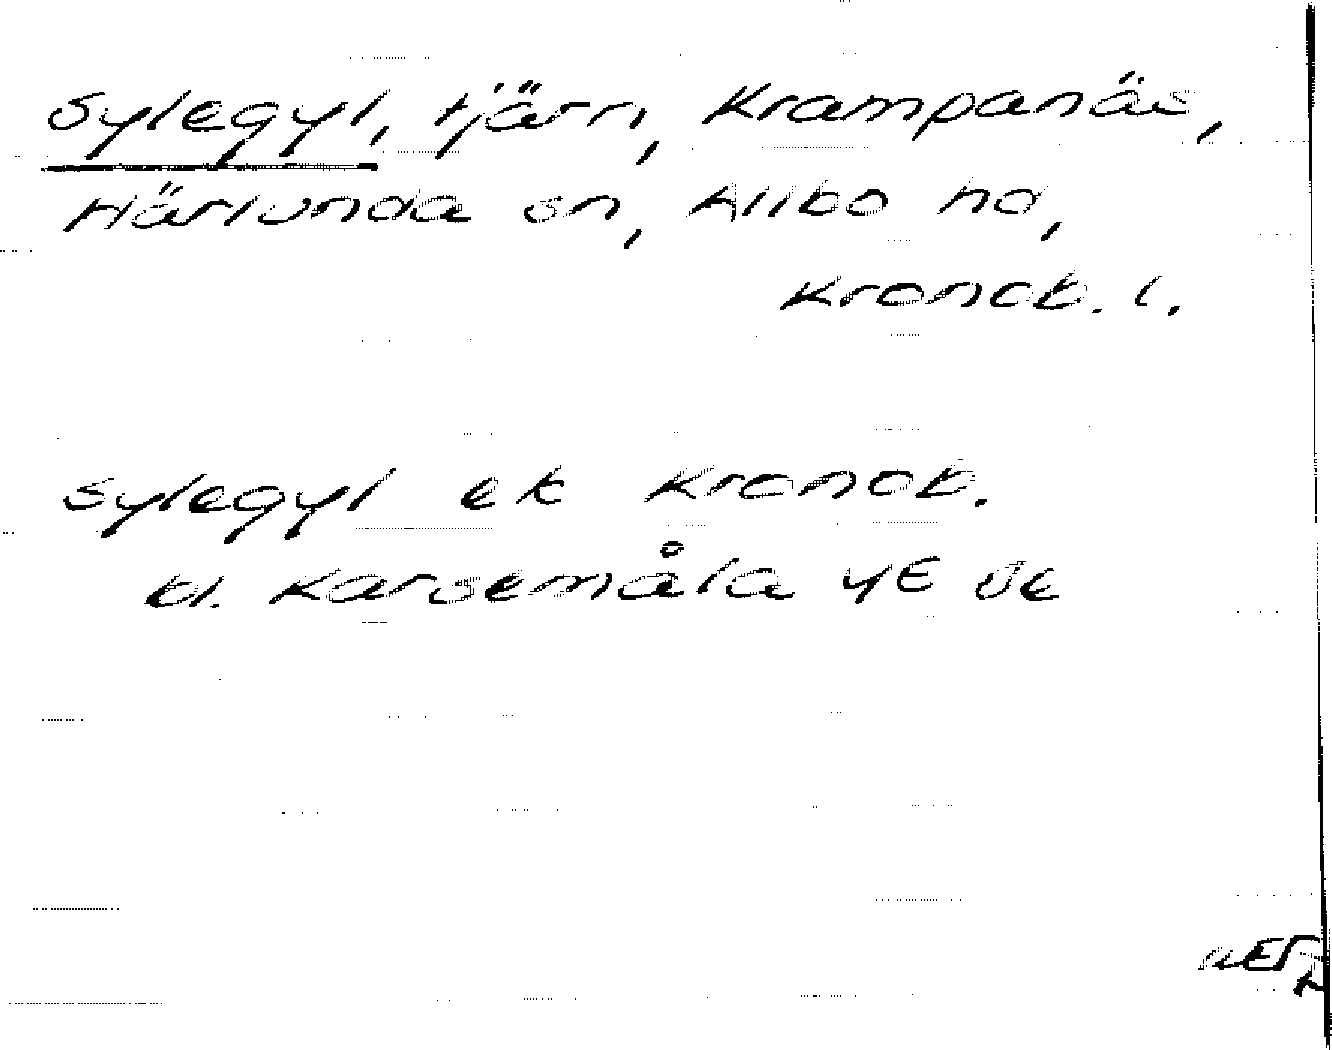 Sylegyl, tjärn, Krampanäs,
Härlunda sn, Allbo hd,
Kronob. l.
Sylegyl ek Kronob.
bl. Karsemåla 4E